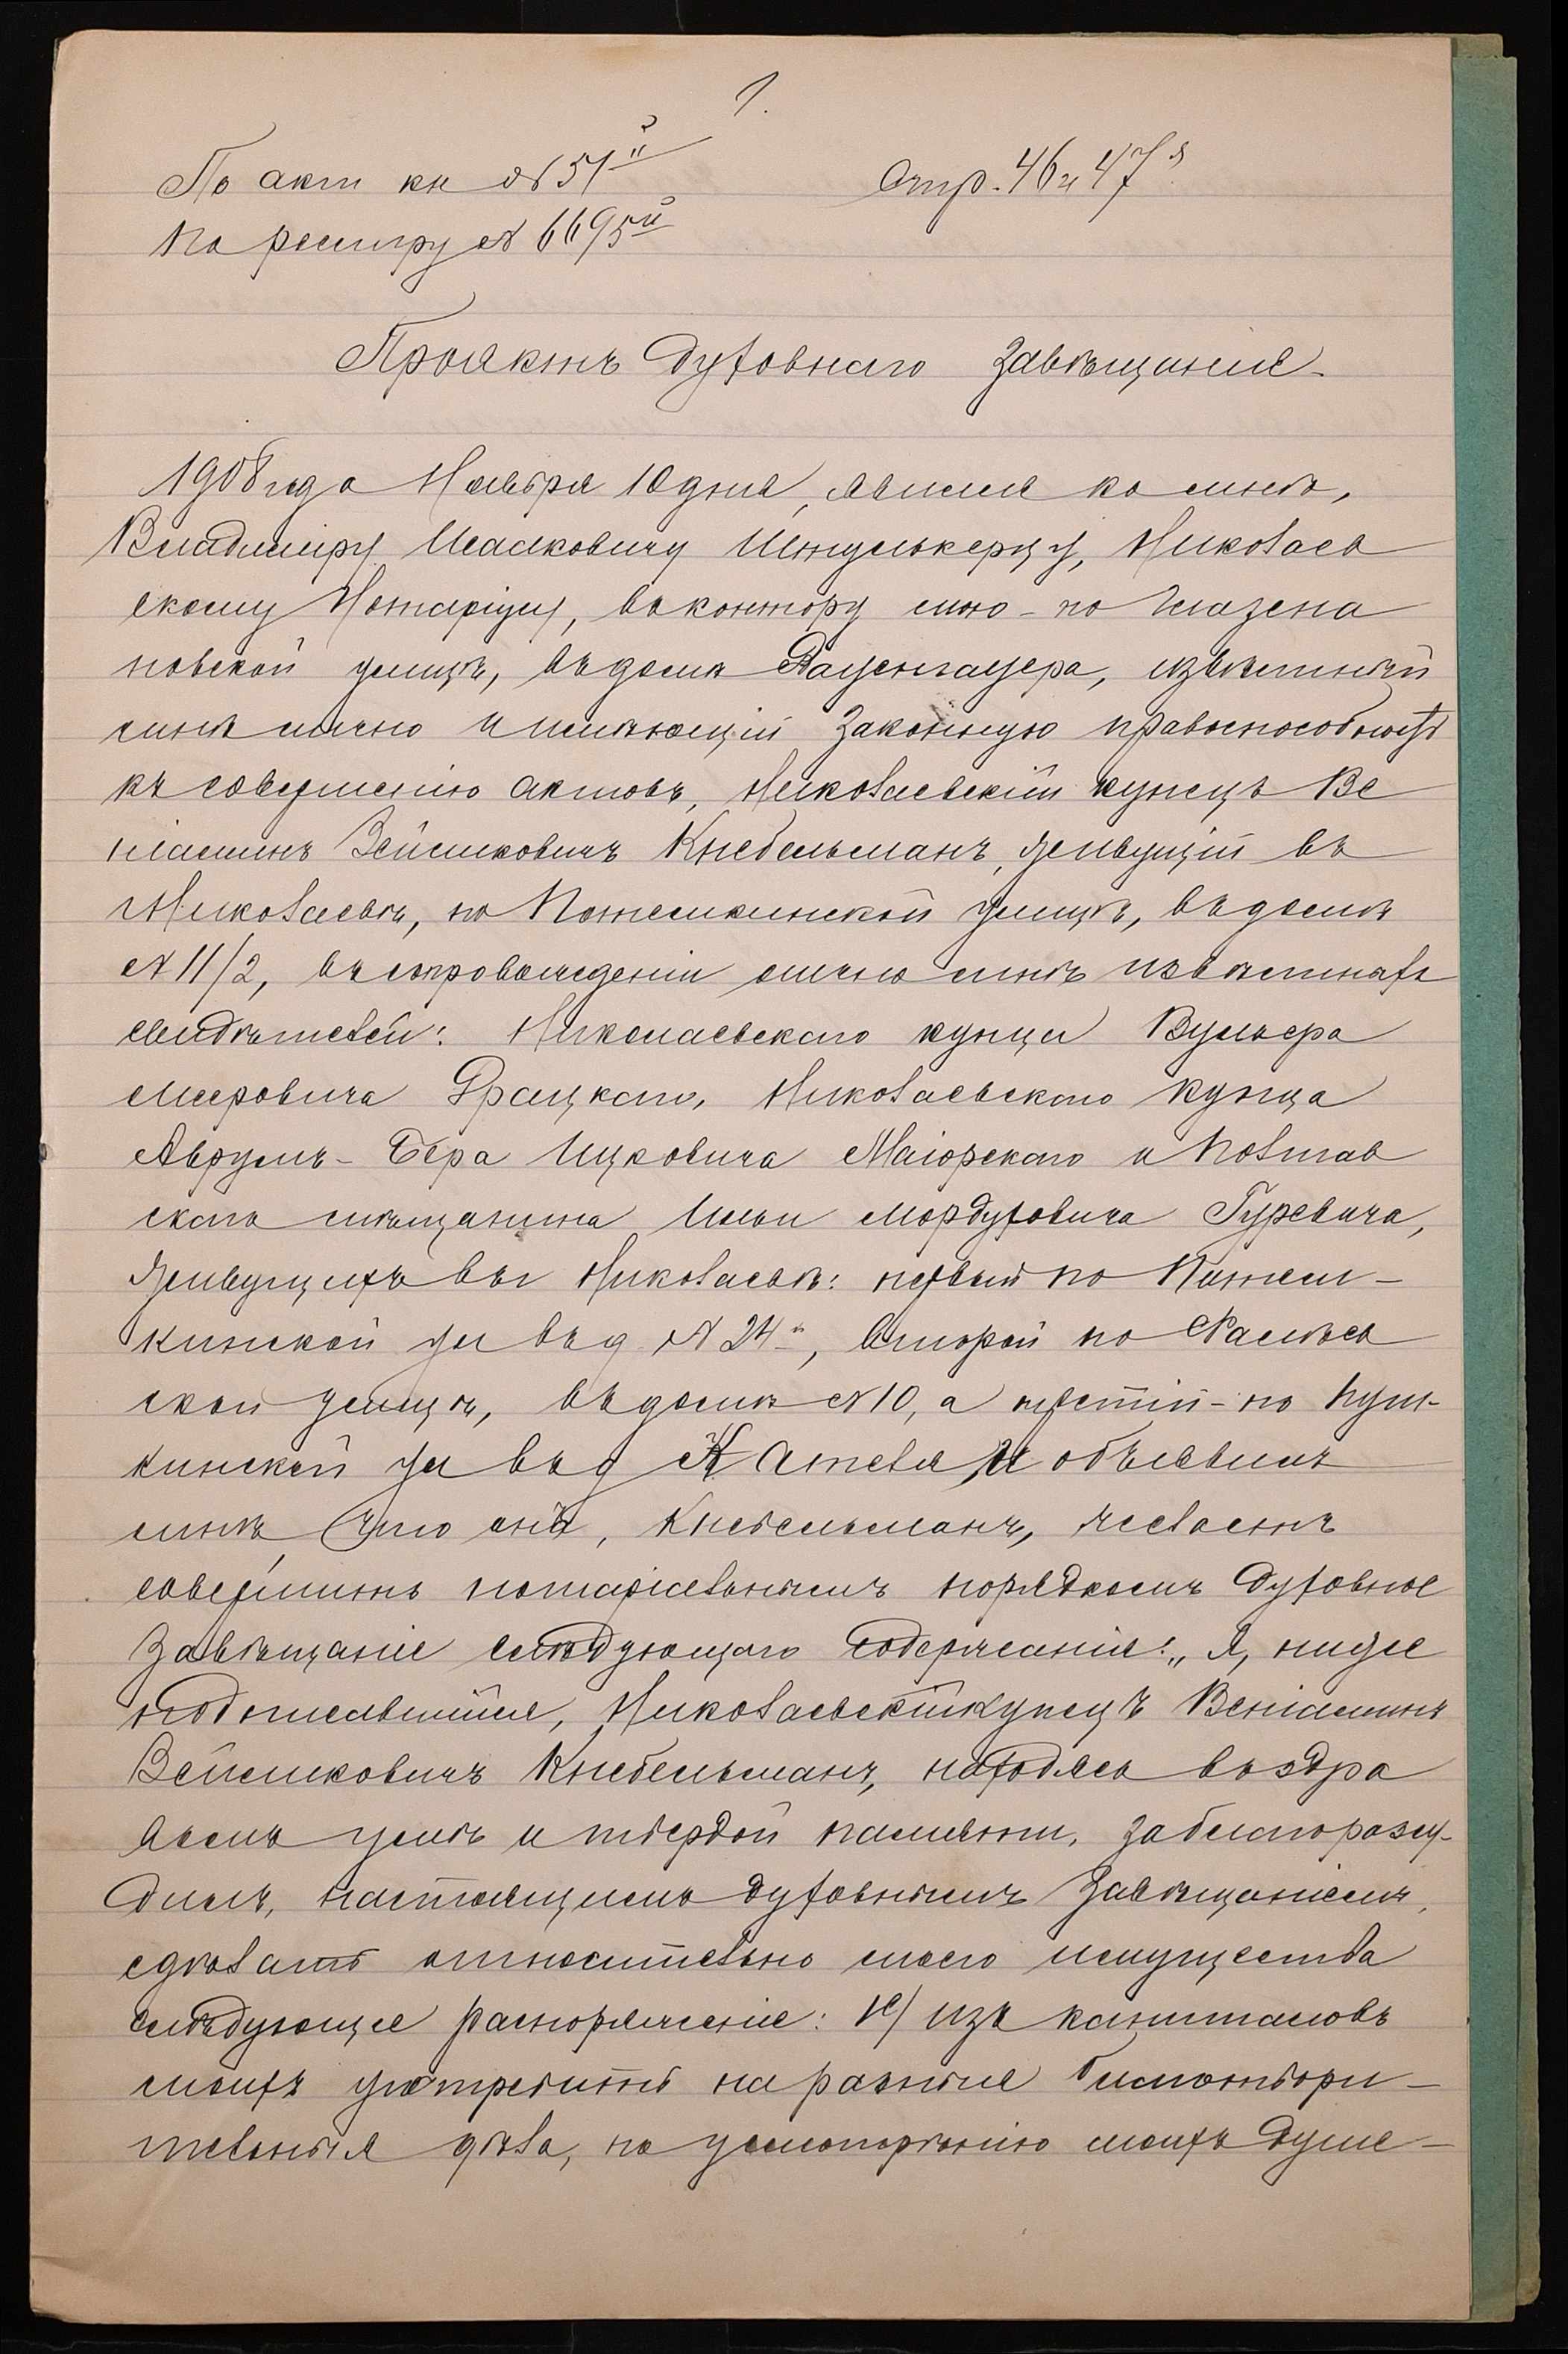 1.
По акт кн № 51й Стр. 46 и 47я
По реестру № 6695й
Проэктъ духовнаго завѣщанія.
1908 года Ноября 10 дня, явился ко мнѣ,
Владиміру Исааковичу Штулькерцу, Николаев
скому Нотаріусу, въ контору мою по Глазена
повской улицѣ, въ домѣ известный
мнѣ лично и имѣющій законную правоспособность
къ совершенію актовъ, Николаевскій купецъ Ве
ніаминъ Зейликовичъ Кнебельманъ, живущій въ
Николаевѣ, по Потемкинской улицѣ, въ домѣ
№ 11/2, въ сопровожденіи лично мнѣ извѣстныхъ
свидѣтелей: Николаевскаго купца Вульфа
Мееровича Грацкаго, Николаевскаго купца
Аврумъ-Бера Ицковича Маіорскаго и Полтав
скаго мѣщанина Ильи Мордуховича Гуревича,
живущихъ въ Николаевѣ: первый по Потем-
кинской ул въ д № 24й, второй по
ской улицѣ, въ домѣ № 10, а третій - по Пуш-
кинской ул въ д и объявилъ
мнѣ, что онъ, Кнебельманъ, желаетъ
совершить нотаріальнымъ порядкомъ духовное
завѣщаніе слѣдующаго содержанія: „Я, ниже
подписавшійся, Николаевскій купецъ Веніаминъ
Зейликовичъ Кнебельманъ, находясь въ здра
вомъ умѣ и твердой памяти, заблагоразсу-
дилъ, настоящимъ духовнымъ завѣщаніемъ,
сдѣлать относительно моего имущества
слѣдующее распоряженіе: из капиталовъ
моихъ употребить на разныя благотвори-
тельныя дѣла, по усмотрѣнію моихъ душе-